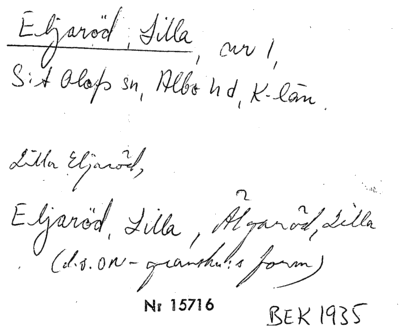 Eljaröd, Lilla, nr 1,
S:t Olofs sn, Albo hd, K-län.
Lilla Eljaröd,
Eljaröd, Lilla, Älgaröd, Lilla
(d.s. ON-granskn:s form)
Nr 15716
BEK 1935